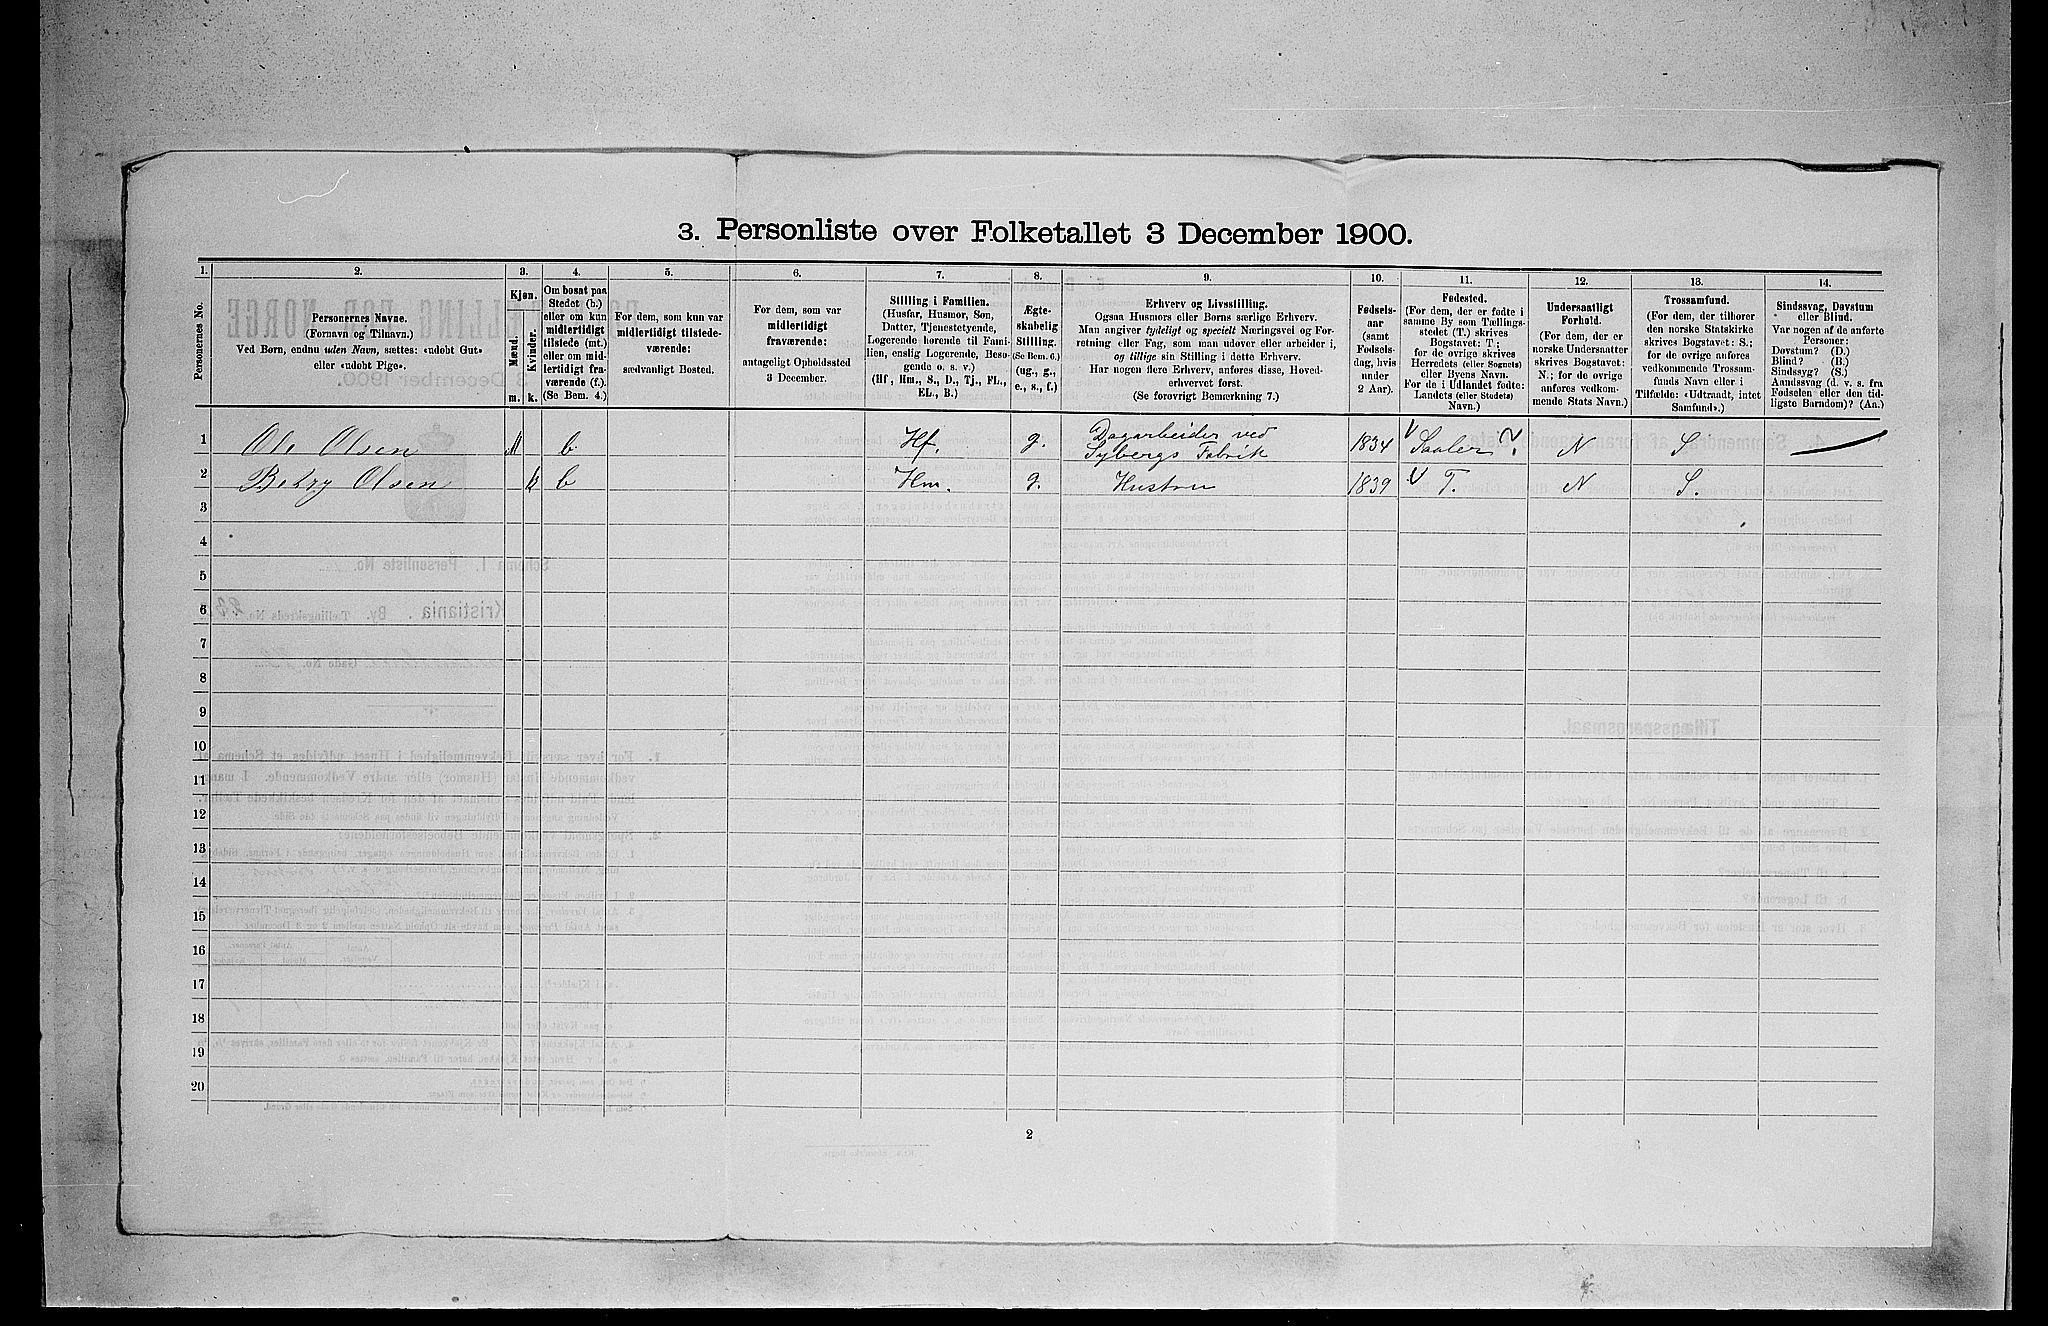 3. Personliste over Folketallet 3 December 1900.
1. 2. 3. 4. 5. 6. 7. 8. 9. 10. 11. 12. 13. 14.
Personernes No.
Personernes Navne.
(Fornavn og Tilnavn.)
Ved Børn, endnu uden Navn, sættes: «udøbt Gut»
eller «udøbt Pige».
Kjøn.
Mænd.
Kvinder.
m. k.
Om bosat paa
Stedet (b.)
eller om kun
midlertidigt
tilstede (mt.)
eller om mid-
lertidigt fra-
værende (f.).
(Se Bem. 4.)
For dem, som kun var
midlertidigt tilstede-
værende:
sædvanligt Bosted.
For dem, som var
midlertidigt
fraværende:
antageligt Opholdssted
3 December.
Stilling i Familien.
(Husfar, Husmor, Søn,
Datter, Tjenestetyende,
Logerende hørende til Fami-
lien, enslig Logerende, Besø-
gende o. s. v.)
(Hf, Hm., S., D., Tj., FL.,
EL., B.)
Ægte-
skabelig
Stilling.
(Se Bem. 6.)
(ug., g.,
e., s., f.)
Erhverv og Livsstilling.
Ogsaa Husmors eller Børns særlige Erhverv.
Man angiver tydeligt og specielt Næringsvei og For-
retning eller Fag, som man udøver eller arbeider i,
og tillige sin Stilling i dette Erhverv.
Har nogen flere Erhverv, anføres disse, Hoved-
erhvervet først.
(Se forøvrigt Bemærkning 7.)
Fødsels-
aar
(samt
Fødsels-
dag, hvis
under
2 Aar).
Fødested.
(For dem, der er fødte i
samme By som Tællings-
stedet (T.) skrives
Bogstavet: T.;
for de øvrige skrives
Herredets (eller Sognets)
eller Byens Navn.
For de i Udlandet fødte:
Landets (eller Stedets)
Navn.)
Undersaatligt
Forhold.
(For dem, der er
norske Undersaatter
skrives Bogstavet:
N.; for de øvrige
anføres vedkom-
mende Stats Navn.)
Trossamfund.
(For dem, der tilhører
den norske Statskirke
skrives Bogstavet: S.;
for de øvrige anføres
vedkommende Trossam-
funds Navn eller i
Tilfælde: «Udtraadt, intet
Samfund».)
Sindssvag, Døvstum
eller Blind.
Var nogen af de anførte
Personer:
Døvstum? (D.)
Blind? (B.)
Sindssyg? (S.)
Aandssvag (d. v. s. fra
Fødselen eller den tid-
ligste Barndom)? (An.)
1 Ole Olsen M b Hf. g. Dagarbeider ved
Sybergs Fabrik 1834 Saaler? N S
2 Betzy Olsen k b Hm. g. Hustru 1839 T. N S.
3
4
5
6
7
8
9
10
11
12
13
14
15
16
17
18
19
20
2